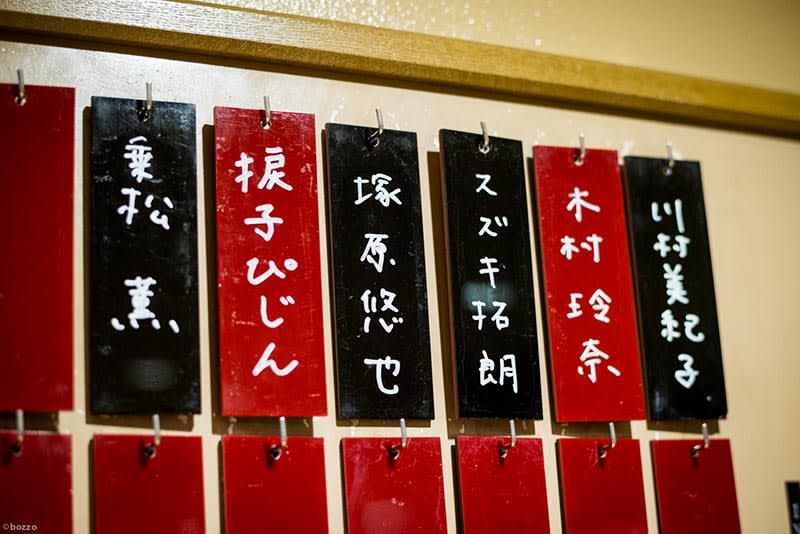 川村美紀子
木村玲奈
スズキ拓朗
塚原悠也
捩子ぴじん
乗松薫
©bozzo